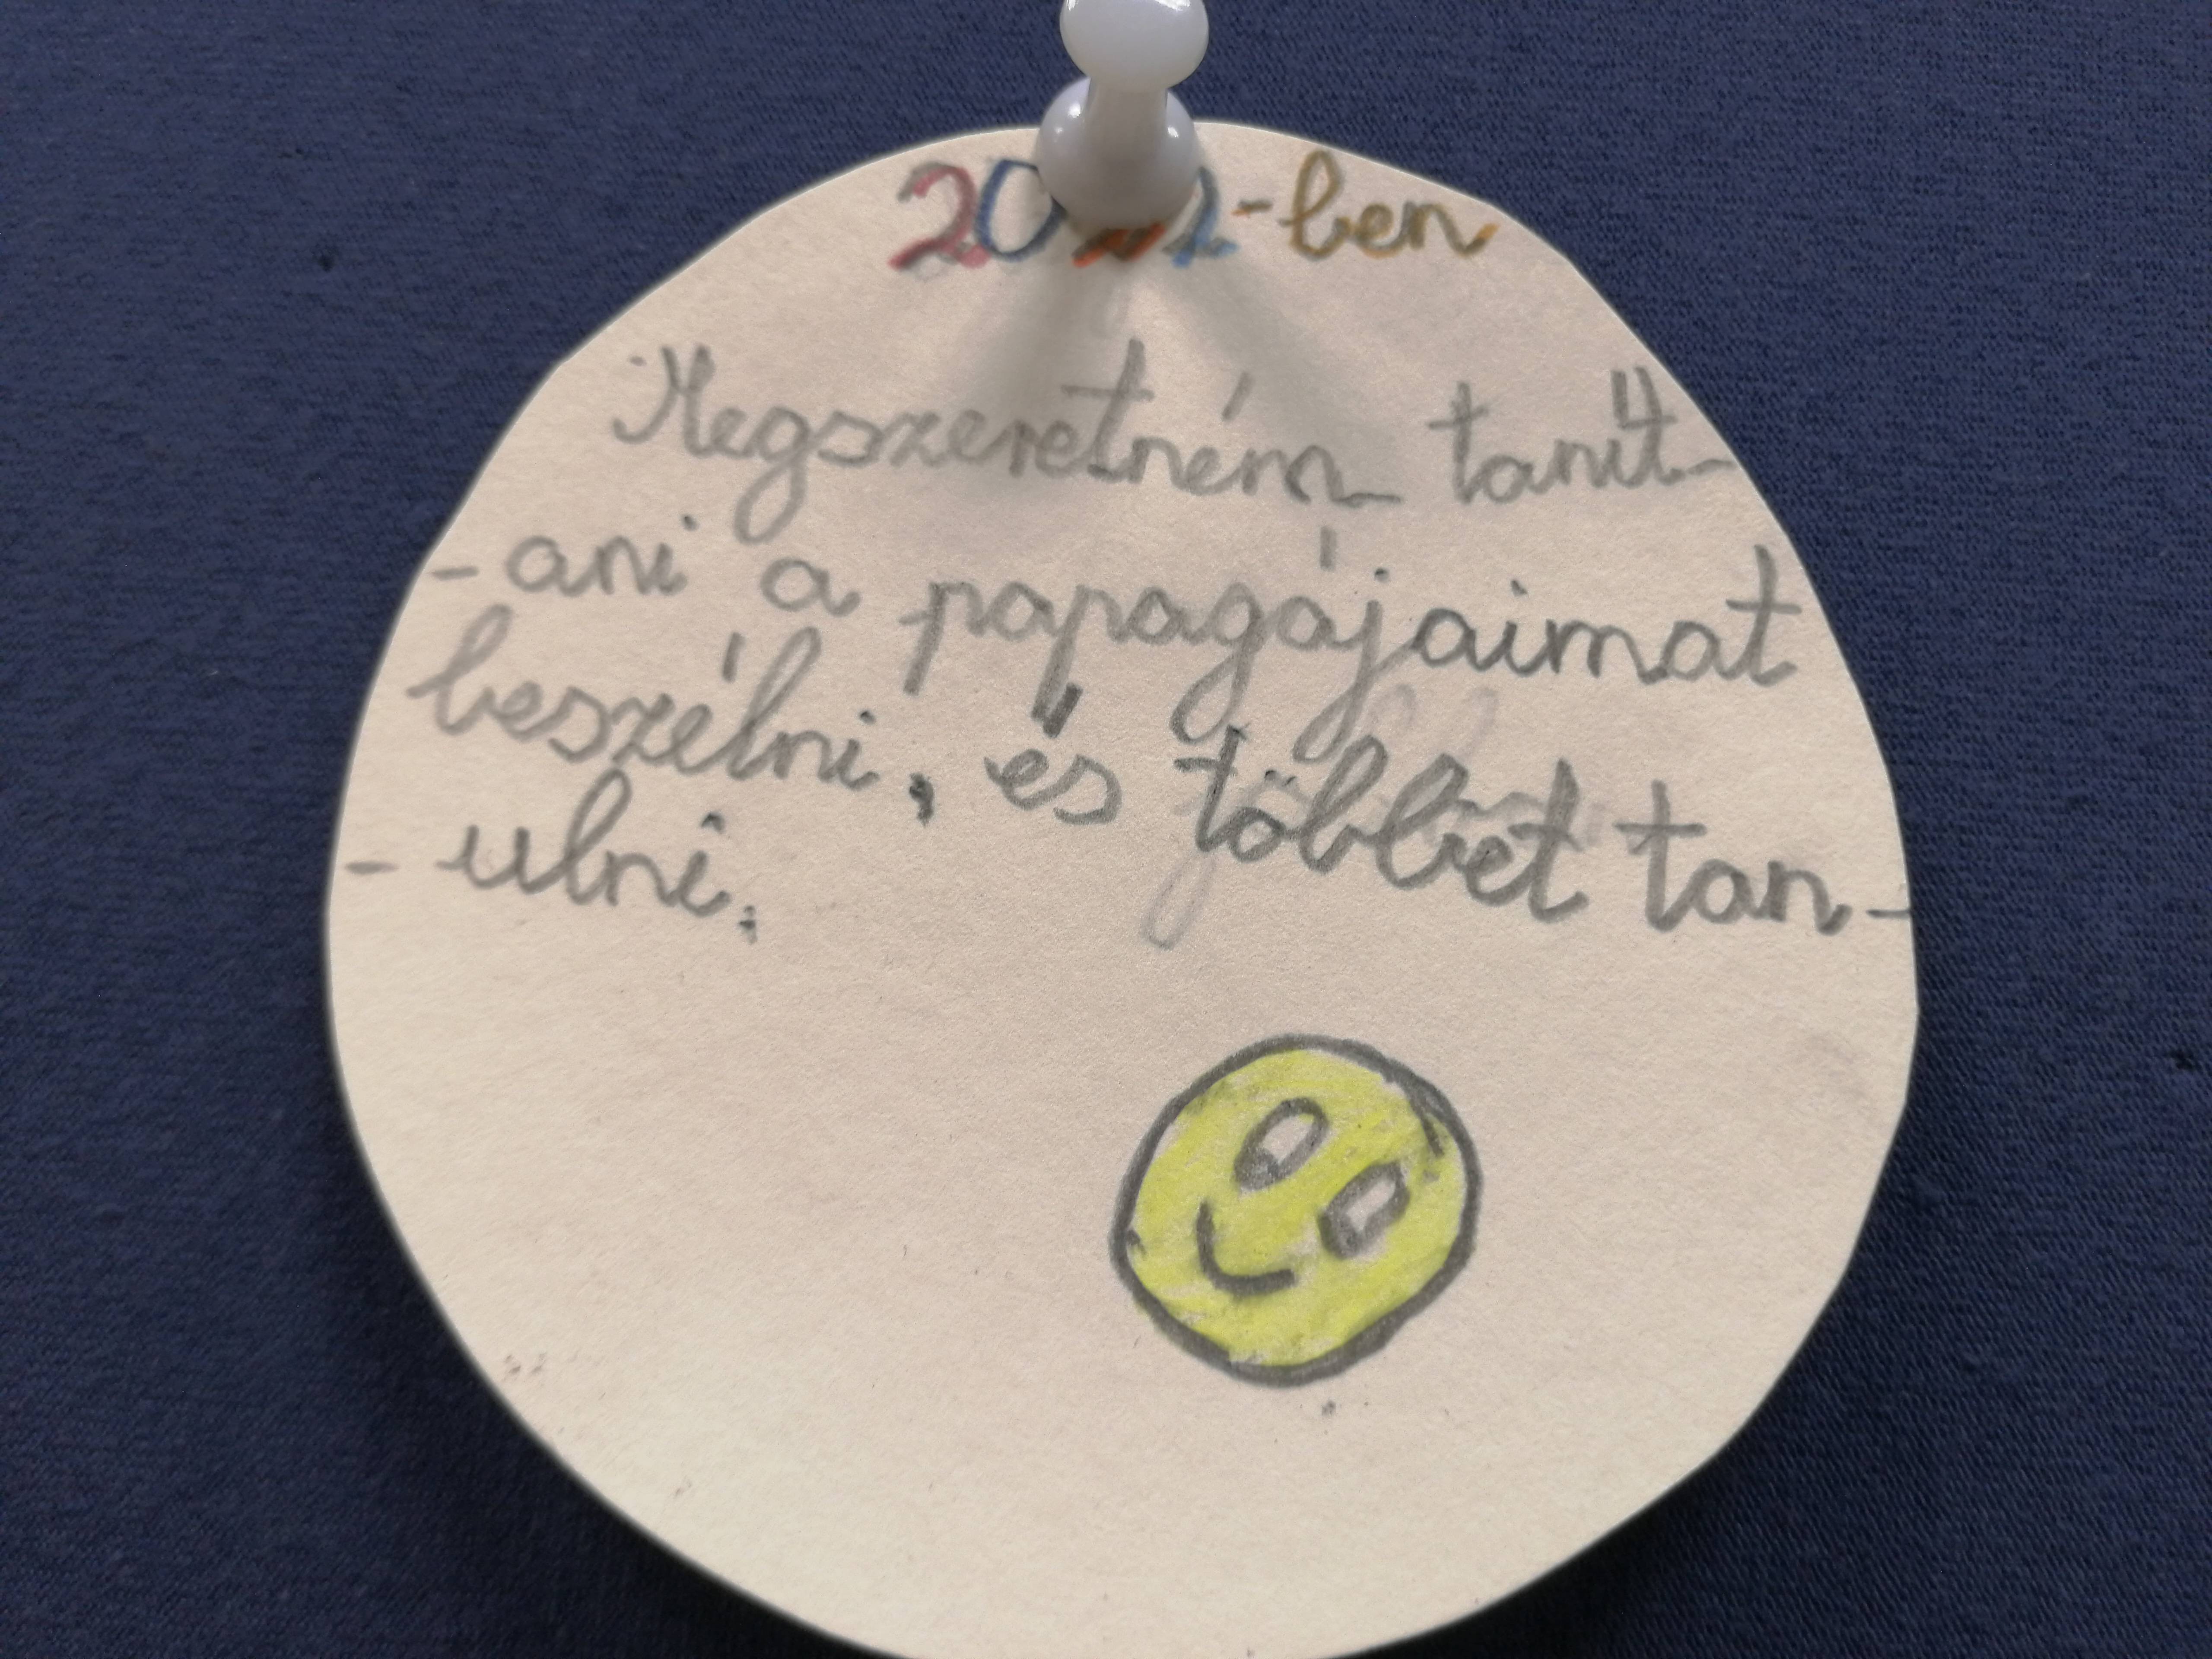 2022-ben
Megszeretném tanít-
-ani a papagájaimat
beszélni, és többet tan-
- ulni.